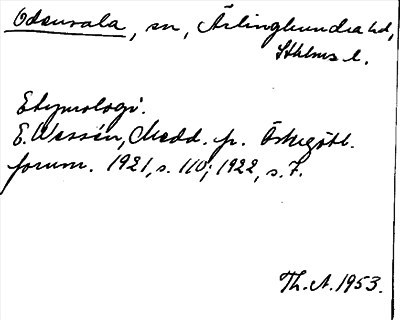 Odensala, sn, Ärlinghundra hd,
Sthlms l.
Etymologi.
E. Wessén, Medd. fr. Östergötl.
fornm. 1921, s. 110; 1922, s. 7.
Th. A. 1953.